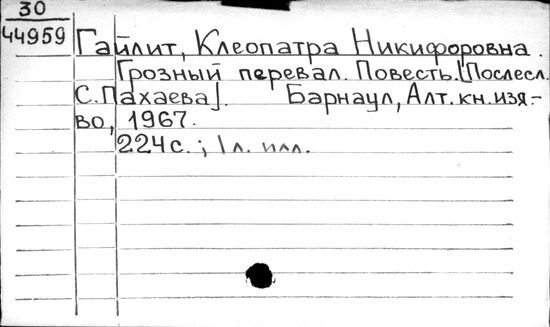 30
44959
Гайлит, Клеопатра Никифоровна.
Грозный перевал. Повесть. [Послесл.
С. Пахаева]. Барнаул, Алт. кн. изд-
во, 1967.
224с. ; 1л. илл.